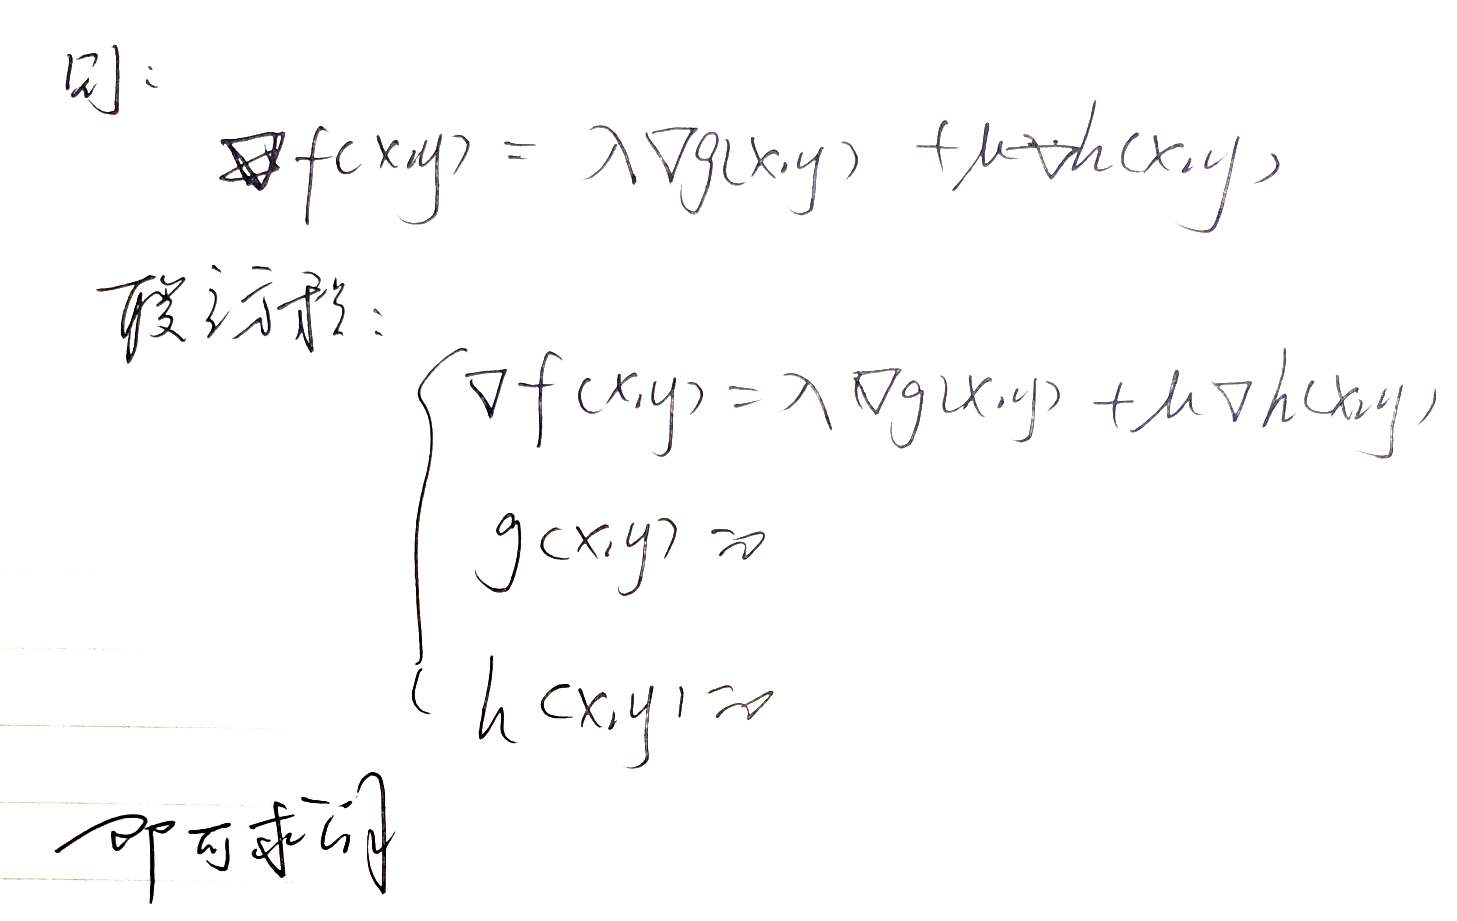 则:
∇f(x,y) = λ∇g(x,y) + μ∇h(x,y)
联立方程:
∇f(x,y) = λ∇g(x,y) + μ∇h(x,y)
g(x,y)=0
h(x,y)=0
即可求